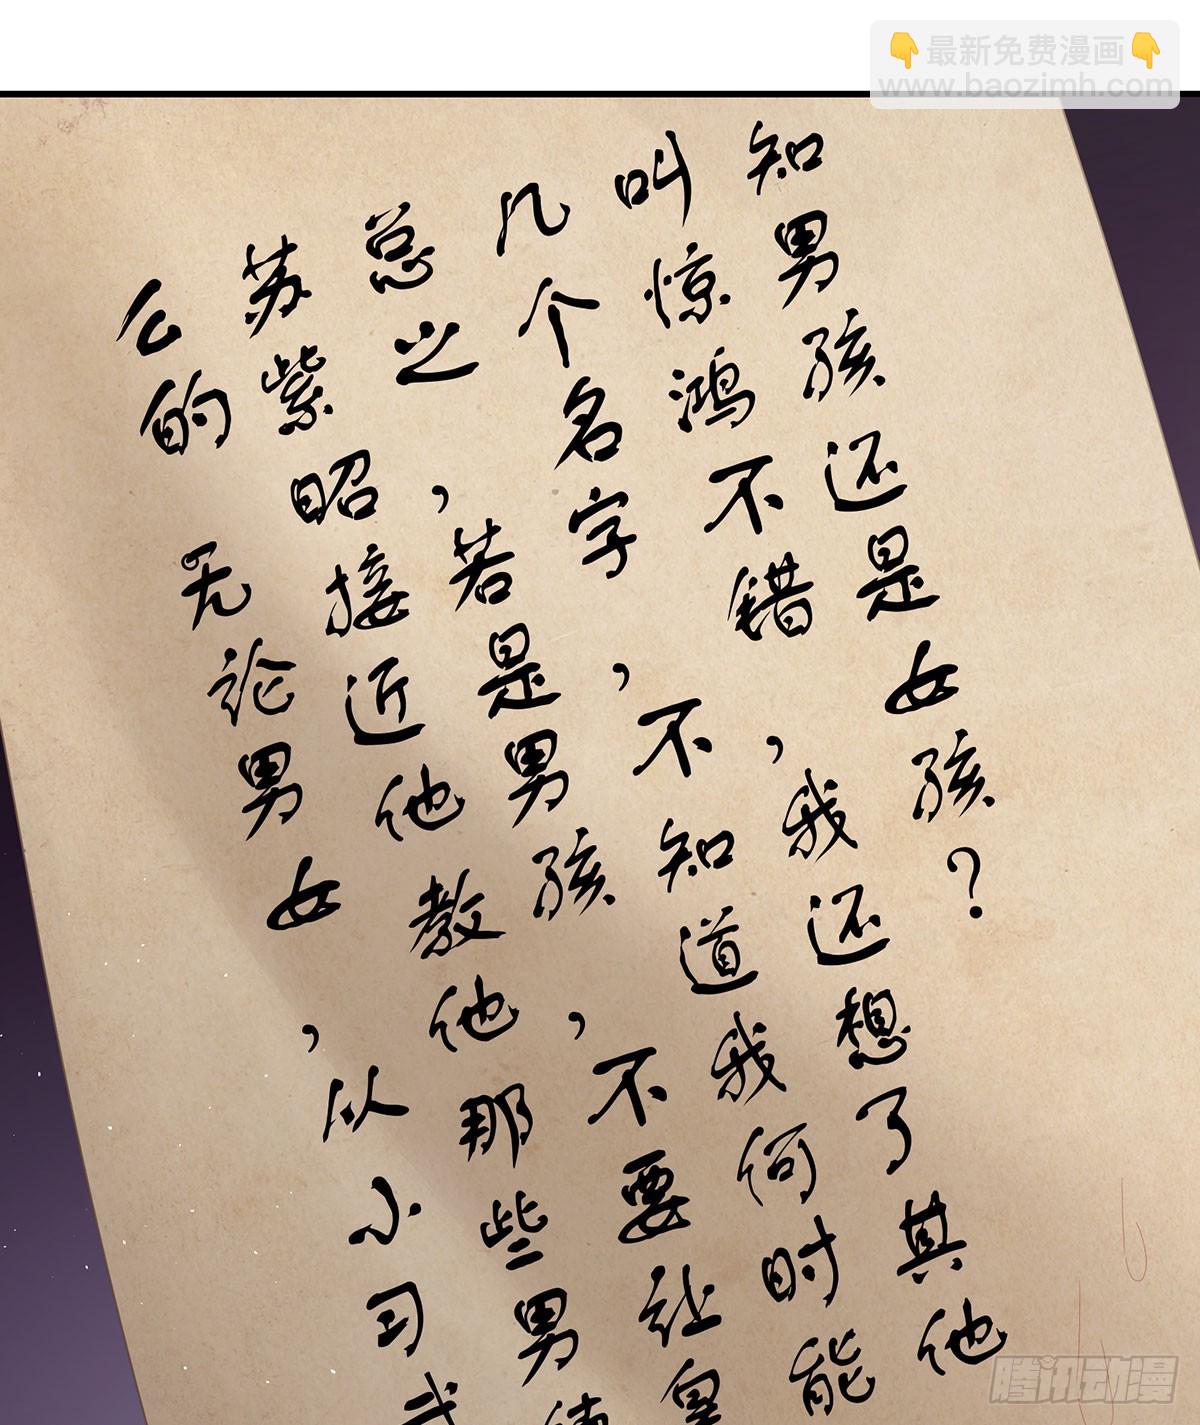 👇最新免费漫画👇
www.baozimh.com
知男孩还是女孩？
叫惊鸿不错，我还想了其他
几个名字，不知道我何时能
总之，若是男孩，不要让皇
苏紫昭接近他教他那些男
么的无论男女，从小习武
腾讯动漫